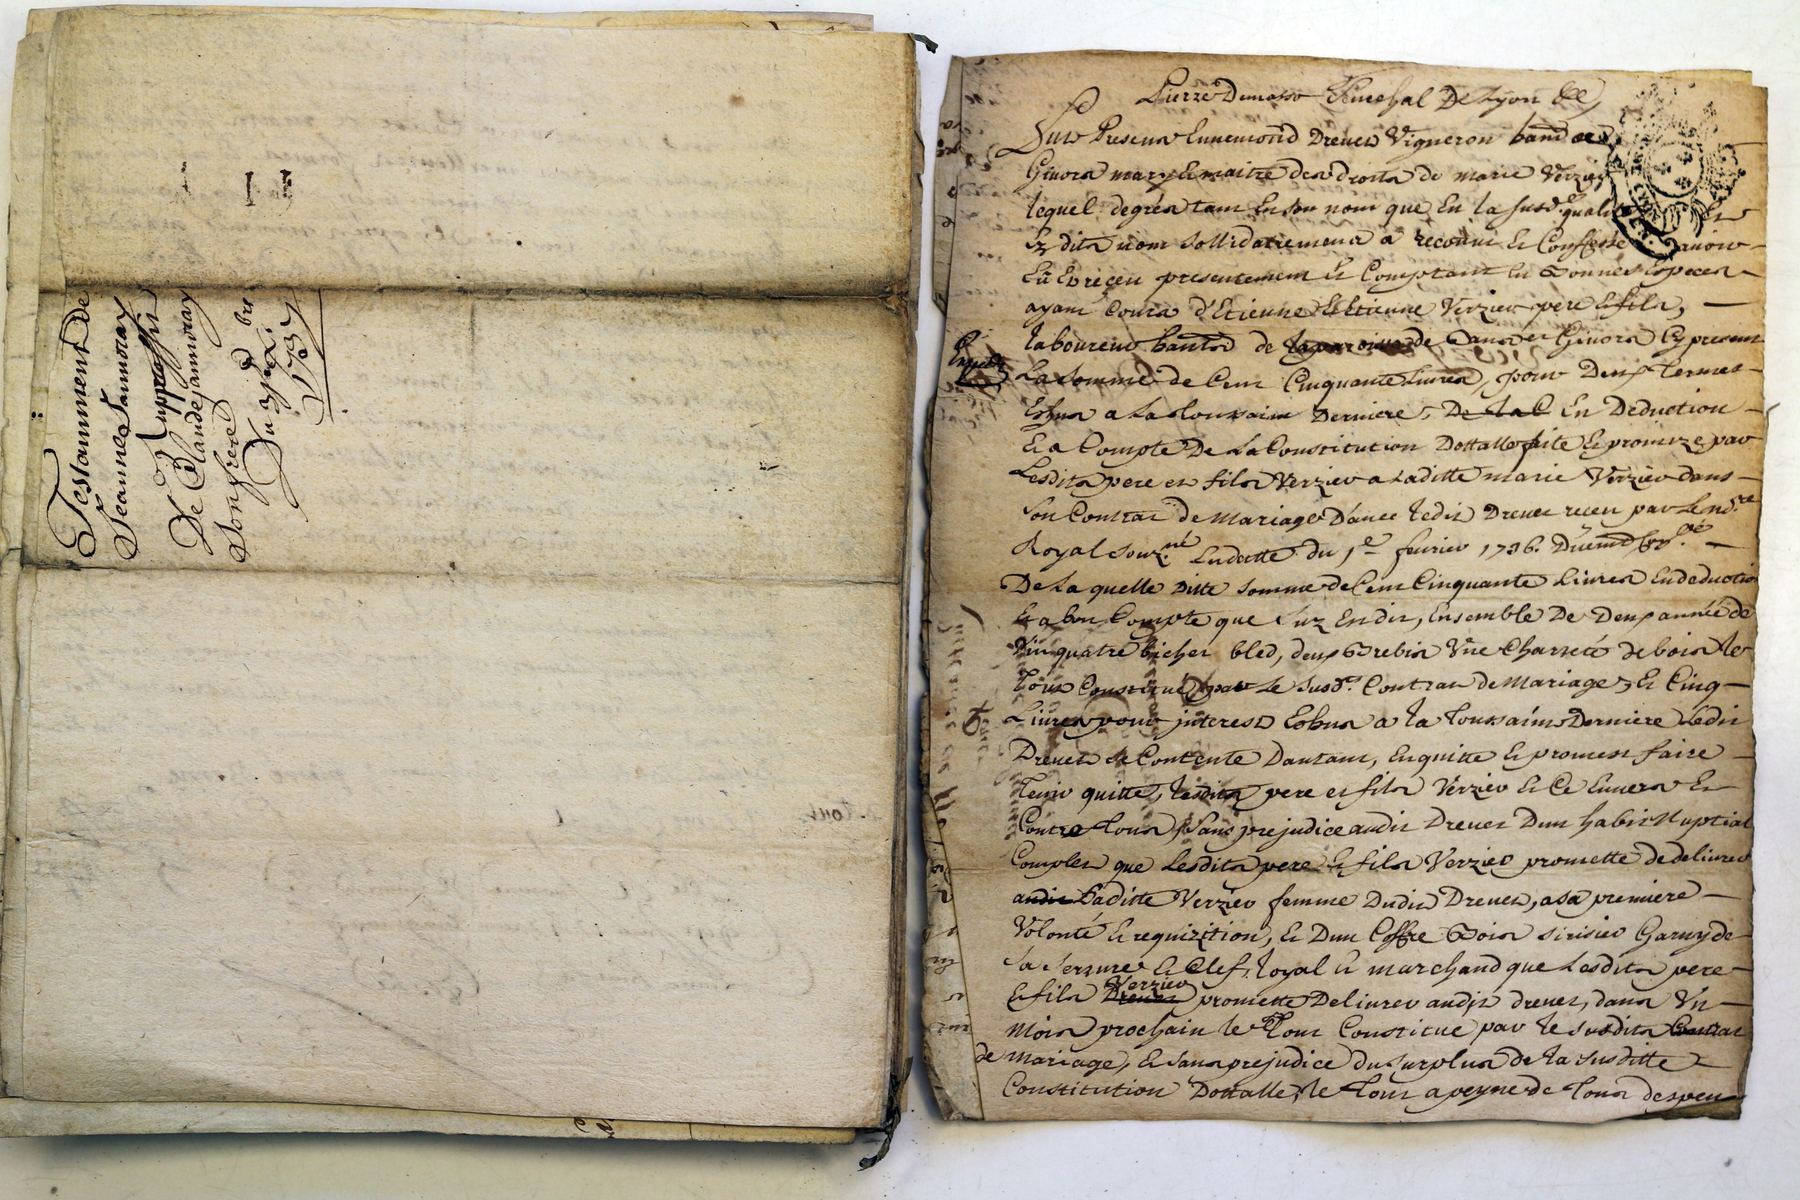 Testamment de
Jeanne Jamoray
De Claude Jamoray
Son frere
Du 29e Xbre
1737
Pierre Dumas Senechal De Lyon &c
Fut Present Ennemond Drevet Vigneron habt de
Givors mary et maitre des droits de marie Verzier
lequel degres tant En son nom que En la susd. qualité Et
Ez dits nom sollidairement a reconnu Et Confesse avoir
Eü Et receu presentement Et Comptant En Bonnes Especes
ayant Cours d'Etienne et Etienne Verzier pere et fils,
laboureur habts de la paroisse de Givors Cy present
La somme de Cent Cinquante Livres, pour Deux Termes
Echus a La Toussaint Derniere, De La C En Deduction
Et a Compte De La Constitution Dottalle faite Et promize par
Lesdits pere et fils Verzier a Laditte marie Verzier dans
Son Contrat de Mariage D'avec ledit Drevet receu par Le nore
Royal Souz.né Ladatte du 1e fevrier 1736.
De La quelle ditte somme de Cent Cinquante Livres En deduction
Et a bon Compte que Suz En dit, Ensemble De Deux année de
Vin quatre bichet bled, deux Brebis Vne Charreté de bois le
Tout Constitué par Le susd. Contrat de Mariage, Et Cinq
Livres pour jnterest Echus a la Toussaint Derniere Ledit
Drevet se Contente Dautant, En quitte Et promest faire
Tenir quitte, lesdits pere et fils Verzier Et Ce Envers Et
Contre Tous, Sans prejudice audit Drevet Dun habit Nuptial
Complet que Lesdits pere Et fils Verzier promette de delivrer
audit Laditte Verzier femme Dudit Drevet, a sa premiere
Volonté Et requizition, Et Dun Coffre Bois sirisier Garny de
Sa Serzure Et Clef, Loyal Et marchand que Lesdits pere
Et fils Drevet Verzier promette Delivrer audit drevet, dans Vn
Mois prochain le Tout Constitue par le susdits Contrat
de mariage, Et Sans prejudice du Surplus de la susditte
Constitution Dottalle, le Tout a peyne de Tous despens